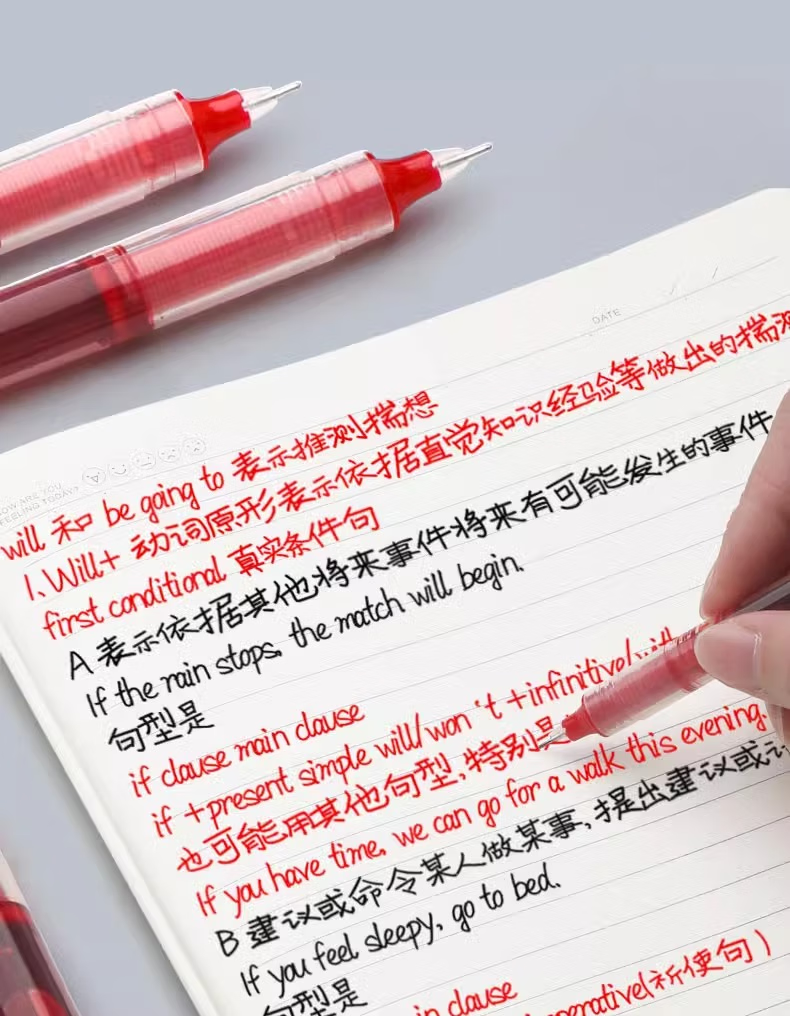 DATE
HOW ARE YOU
FEELING TODAY?
will 和 be going to 表示推测揣想
1、Will+ 动词原形表示依据直觉知识经验等做出的揣测
first conditional 真实条件句
A 表示依据其他将来事件将来有可能发生的事件
If the rain stops, the match will begin.
句型是
if clause main clause
if +present simple will/won't +infinitive/
也可能用其他句型,特别是
If you have time, we can go for a walk this evening.
B 建议或命令某人做某事,提出建议或
If you feel sleepy, go to bed.
句型是
in clause
perative(祈使句)